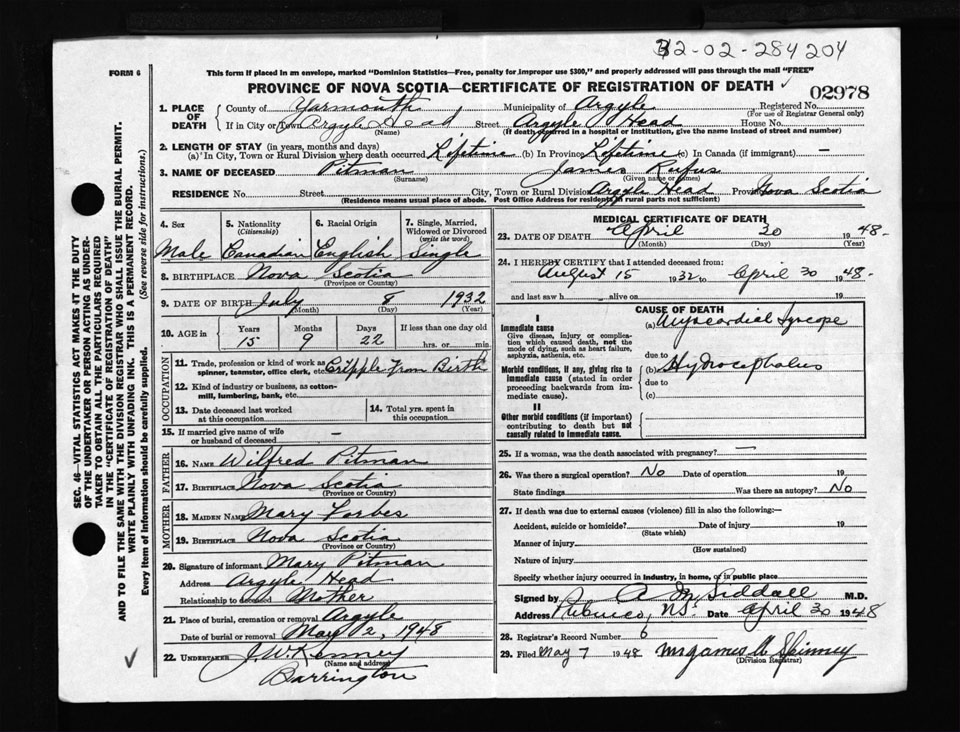 32-02-284204
FORM 6
This form if placed in an envelope, marked "Dominion Statistics—Free, penalty for improper use $300," and properly addressed will pass through the mail "FREE"
PROVINCE OF NOVA SCOTIA—CERTIFICATE OF REGISTRATION OF DEATH
02978
1. PLACE OF DEATH
County of Yarmouth Municipality of Argyle Registered No.
(For use of Registrar General only)
If in City or Town Argyle Head Street Argyle Head House No.
(Name) (If death occurred in a hospital or institution, give the name instead of street and number)
2. LENGTH OF STAY (in years, months and days)
(a) In City, Town or Rural Division where death occurred Lifetime (b) In Province Lifetime (c) In Canada (if immigrant) —
3. NAME OF DECEASED Pitman James Rufus
(Surname) (Given name or names)
RESIDENCE No. Street City, Town or Rural Division Argyle Head Province Nova Scotia
(Residence means usual place of abode. Post Office Address for residents in rural parts not sufficient)
4. Sex
Male
5. Nationality
(Citizenship)
Canadian
6. Racial Origin
English
7. Single, Married, Widowed or Divorced
(write the word)
Single
8. BIRTHPLACE Nova Scotia
(Province or Country)
9. DATE OF BIRTH July 8 1932
(Month) (Day) (Year)
10. AGE in Years Months Days If less than one day old
15 9 22 hrs. or min.
OCCUPATION
11. Trade, profession or kind of work as spinner, teamster, office clerk, etc. Cripple From Birth
12. Kind of industry or business, as cotton-mill, lumbering, bank, etc.
13. Date deceased last worked at this occupation
14. Total yrs. spent in this occupation
15. If married give name of wife or husband of deceased —
FATHER
16. NAME Wilfred Pitman
17. BIRTHPLACE Nova Scotia
(Province or Country)
MOTHER
18. MAIDEN NAME Mary Forbes
19. BIRTHPLACE Nova Scotia
(Province or Country)
20. Signature of informant Mary Pitman
Address Argyle Head
Relationship to deceased Mother
21. Place of burial, cremation or removal Argyle
Date of burial or removal May 2, 1948
22. UNDERTAKER J. W. Kenney
(Name and address)
Barrington
MEDICAL CERTIFICATE OF DEATH
23. DATE OF DEATH April 30 1948
(Month) (Day) (Year)
24. I HEREBY CERTIFY that I attended deceased from:
August 15 1932 to April 30 1948
and last saw h alive on 19
CAUSE OF DEATH
I
Immediate cause
Give disease, injury or complication which caused death, not the mode of dying, such as heart failure, asphyxia, asthenia, etc.
(a) Myocardial Syncope
due to
Morbid conditions, if any, giving rise to immediate cause (stated in order proceeding backwards from immediate cause).
(b) Hydrocephalus
due to
(c)
II
Other morbid conditions (if important) contributing to death but not causally related to immediate cause.
25. If a woman, was the death associated with pregnancy? —
26. Was there a surgical operation? No Date of operation 19
State findings Was there an autopsy? No
27. If death was due to external causes (violence) fill in also the following:—
Accident, suicide or homicide? Date of injury 19
(State which)
Manner of injury
(How sustained)
Nature of injury
Specify whether injury occurred in industry, in home, or in public place
Signed by A M Siddall M.D.
Address Pubnico, N.S. Date April 30 1948
28. Registrar's Record Number 6
29. Filed May 7 1948 Mrs James C Spinney
(Division Registrar)
SEC. 46—VITAL STATISTICS ACT MAKES IT THE DUTY
OF THE UNDERTAKER OR PERSON ACTING AS UNDER-
TAKER TO OBTAIN ALL THE PARTICULARS REQUIRED
IN THE "CERTIFICATE OF REGISTRATION OF DEATH"
AND TO FILE THE SAME WITH THE DIVISION REGISTRAR WHO SHALL ISSUE THE BURIAL PERMIT.
WRITE PLAINLY WITH UNFADING INK. THIS IS A PERMANENT RECORD.
Every item of information should be carefully supplied. (See reverse side for instructions.)